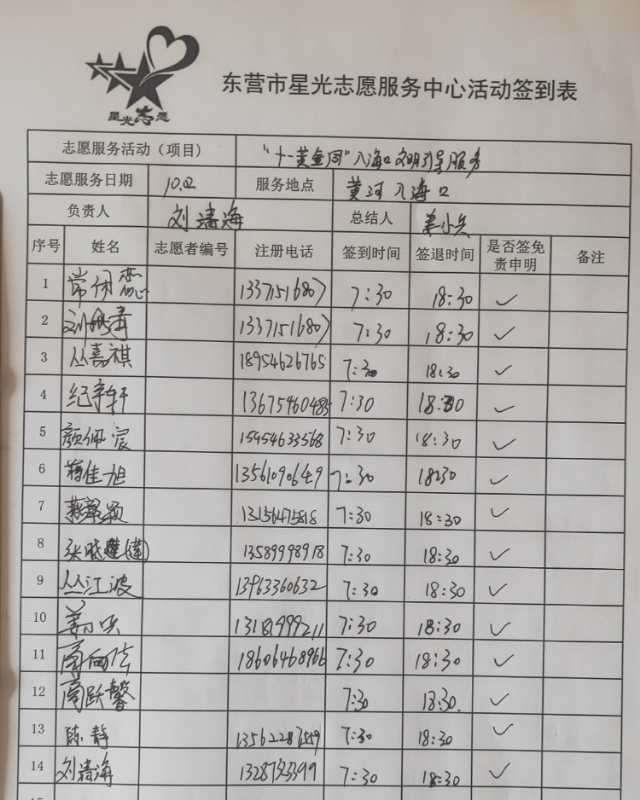 星光志愿
东营市星光志愿服务中心活动签到表
志愿服务活动（项目） “十一黄金周”入海口文明引导服务
志愿服务日期 10.02 服务地点 黄河入海口
负责人 刘清海 总结人 姜小兵
序号 姓名 志愿者编号 注册电话 签到时间 签退时间 是否签免责申明 备注
1 13371516807 7:30 18:30 ✓
2 13371516807 7:30 18:30 ✓
3 丛嘉祺 18954626765 7:30 18:30 ✓
4 纪宇轩 13675460485 7:30 18:30 ✓
5 颜佩宸 15954633568 7:30 18:30 ✓
6 佳旭 13561090649 7:30 18:30 ✓
7 13156475818 7:30 18:30 ✓
8 张晓 13589998978 7:30 18:30 ✓
9 丛江波 13963360632 7:30 18:30 ✓
10 姜小兵 13181999211 7:30 18:30 ✓
11 18606468966 7:30 18:30 ✓
12 跃馨 7:30 18:30 ✓
13 陈静 7:30 18:30 ✓
14 刘清海 7:30 18:30 ✓